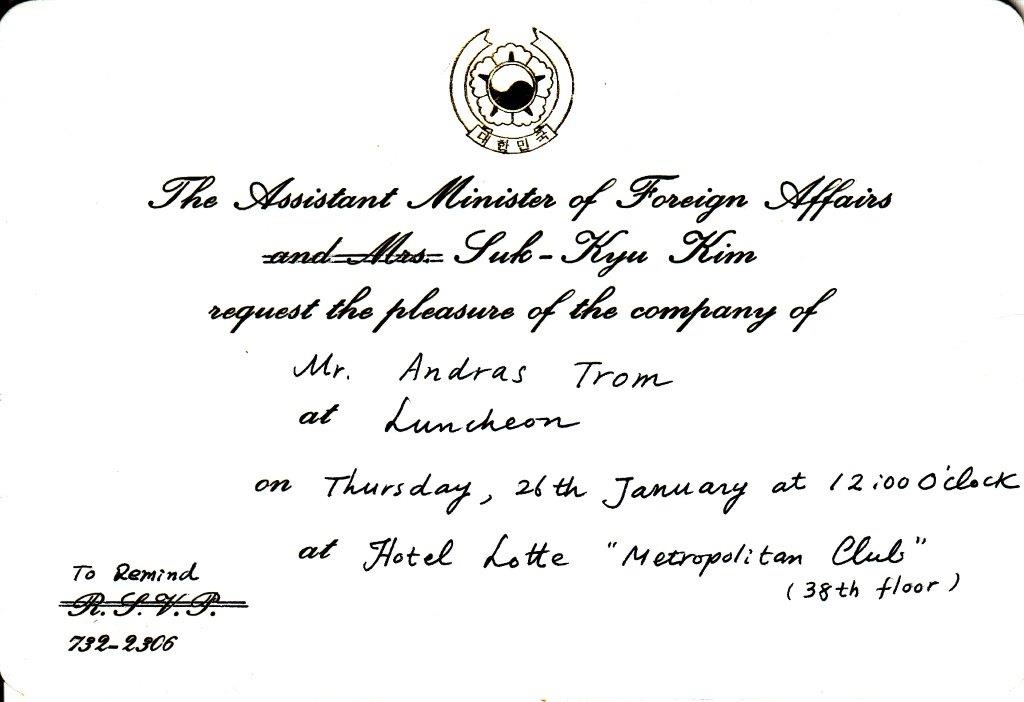 대한민국
The Assistant Minister of Foreign Affairs
and Mrs. Suk-Kyu Kim
request the pleasure of the company of
Mr. Andras Trom
at Luncheon
on Thursday, 26th January at 12:00 O'clock
at Hotel Lotte "Metropolitan Club"
(38th floor)
To Remind
R.S.V.P.
732-2306